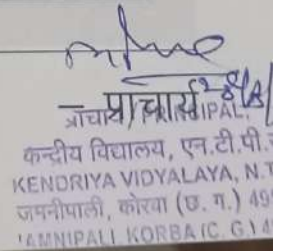 प्राचार्य
प्राचार्य / PRINCIPAL
केन्द्रीय विद्यालय, एन.टी.पी.
KENDRIYA VIDYALAYA, N.T
जमनीपाली, कोरबा (छ. ग.) 49
JAMNIPALI KORBA (C. G.) 4